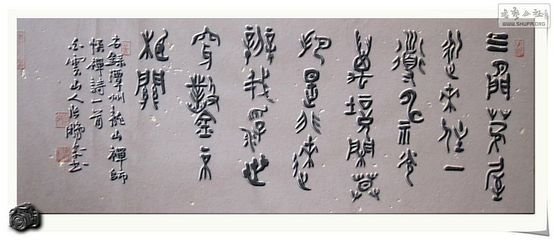 三間茅屋
從來住一
道神光
萬境閑莫
把是非來
辨我浮生
穿鑿不
相關
右錄潭州龍山禪師
悟禪詩一首
白雲山人書